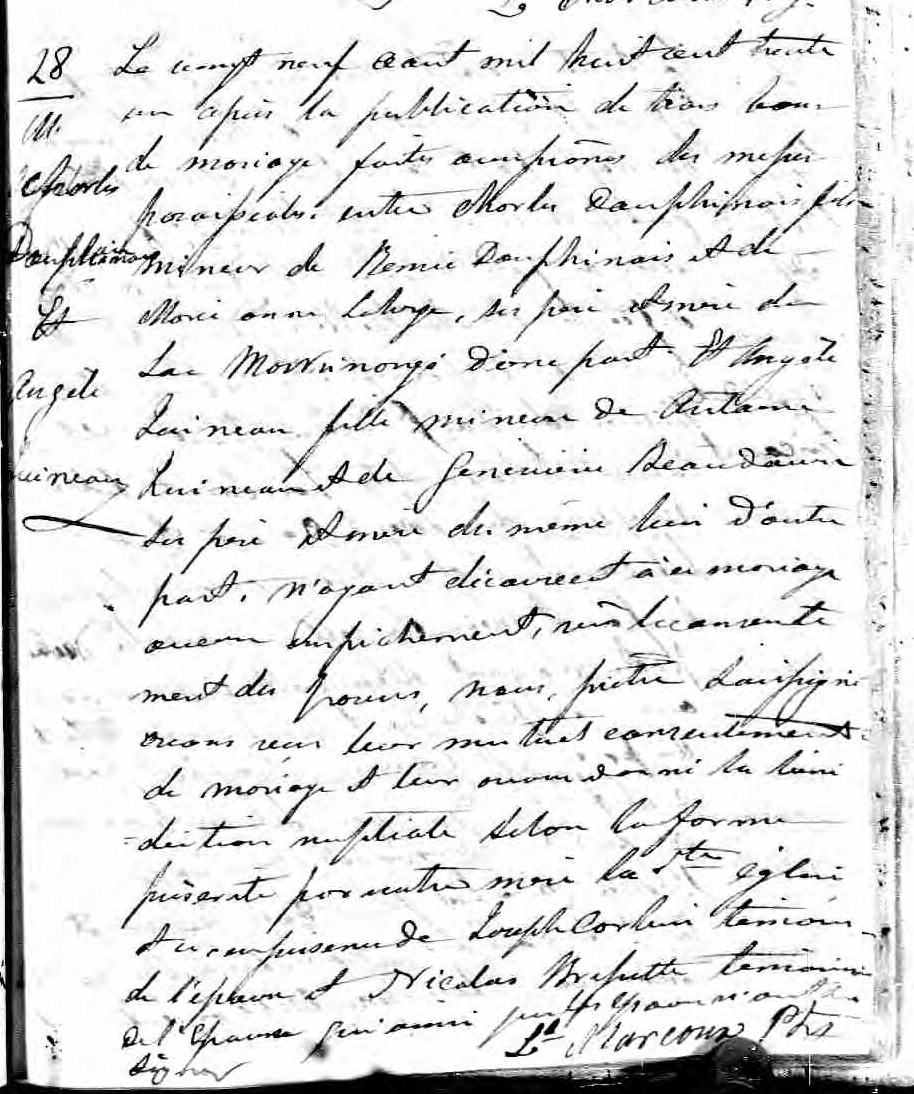 28
M.
Charles
Dauphinais
Et
Angèle
uineau
Le vingt neuf aout mil huit cent trente
un après la publication de trois bans
de mariage faites aux prônes des messes
paroissiales entre Charles Dauphinais fils
mineur de Remie Dauphinais et de
Marie anne ses père et mère du
Lac d'une part. Et Angèle
fille mineure de Antoine
et de Genevieve Beaudouin
ses père et mère du même lieu d'autre
part. n'ayant découvert à ce mariage
aucun empêchement, vu le consente
ment des nous, prêtre soussigné
avons reçu leur mutuel consentement
de mariage et leur avons donné la béné
diction nuptiale selon la forme
préscrite par notre mère la Ste église
et ce, en présence de Joseph témoin
de l'époux et Nicolas témoin
de l'épouse qui ainsi que les époux n'ont su
signer
Ls Marcoux Ptre